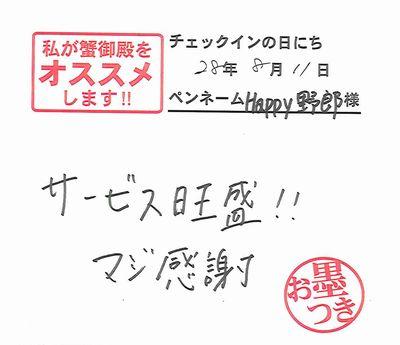 私が蟹御殿を
オススメ
します!!
チェックインの日にち
28年 8月 11日
ペンネーム Happy野郎 様
サービス旺盛!!
マジ感謝
お墨つき